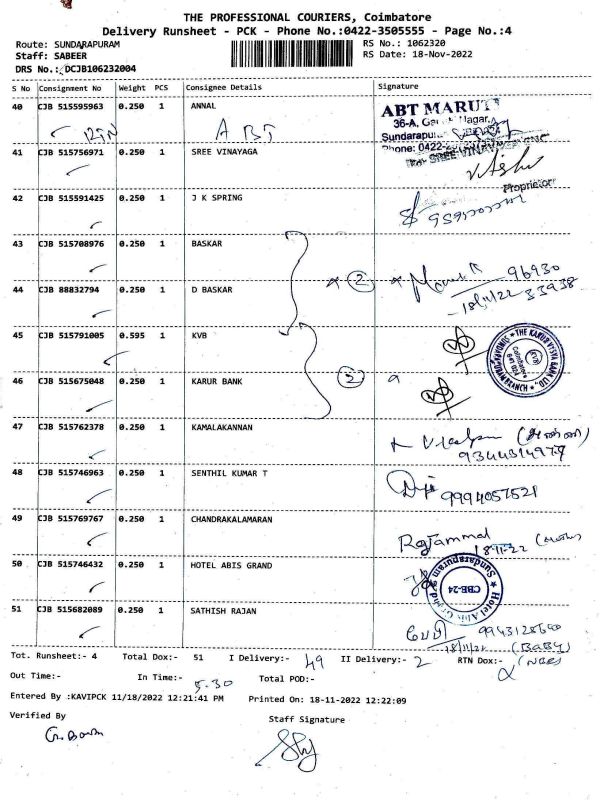 THE PROFESSIONAL COURIERS, Coimbatore
Delivery Runsheet - PCK - Phone No.:0422-3505555 - Page No.:4
Route: SUNDARAPURAM
RS No.: 1062320
Staff: SABEER
RS Date: 18-Nov-2022
DRS No.: DCJB106232004
S No Consignment No Weight PCS Consignee Details Signature
40 CJB 515595963 0.250 1 ANNAL
ABT MARUTI
ABT
36-A,
Nagar,
Sundarapu
Phone: 0422-
41 CJB 515756971 0.250 1 SREE VINAYAGA
For SREE
Proprietor
42 CJB 515591425 0.250 1 J K SPRING
43 CJB 515708976 0.250 1 BASKAR
2
96930
44 CJB 88832794 0.250 1 D BASKAR
18/11/22 33938
45 CJB 515791005 0.595 1 KVB
THE KARUR VYSYA BANK LTD.,
46 CJB 515675048 0.250 1 KARUR BANK
2
47 CJB 515762378 0.250 1 KAMALAKANNAN
48 CJB 515746963 0.250 1 SENTHIL KUMAR T
9994057521
49 CJB 515769767 0.250 1 CHANDRAKALAMARAN
Rajammal
50 CJB 515746432 0.250 1 HOTEL ABIS GRAND
Hotel Abis Grand
CBE-24
Sundarapuram
51 CJB 515682089 0.250 1 SATHISH RAJAN
18/11/22 (BABY)
Tot. Runsheet:- 4 Total Dox:- 51 I Delivery:- 49 II Delivery:- 2 RTN Dox:-
Out Time:- In Time:- 5.30 Total POD:-
Entered By :KAVIPCK 11/18/2022 12:21:41 PM Printed On: 18-11-2022 12:22:09
Verified By Staff Signature